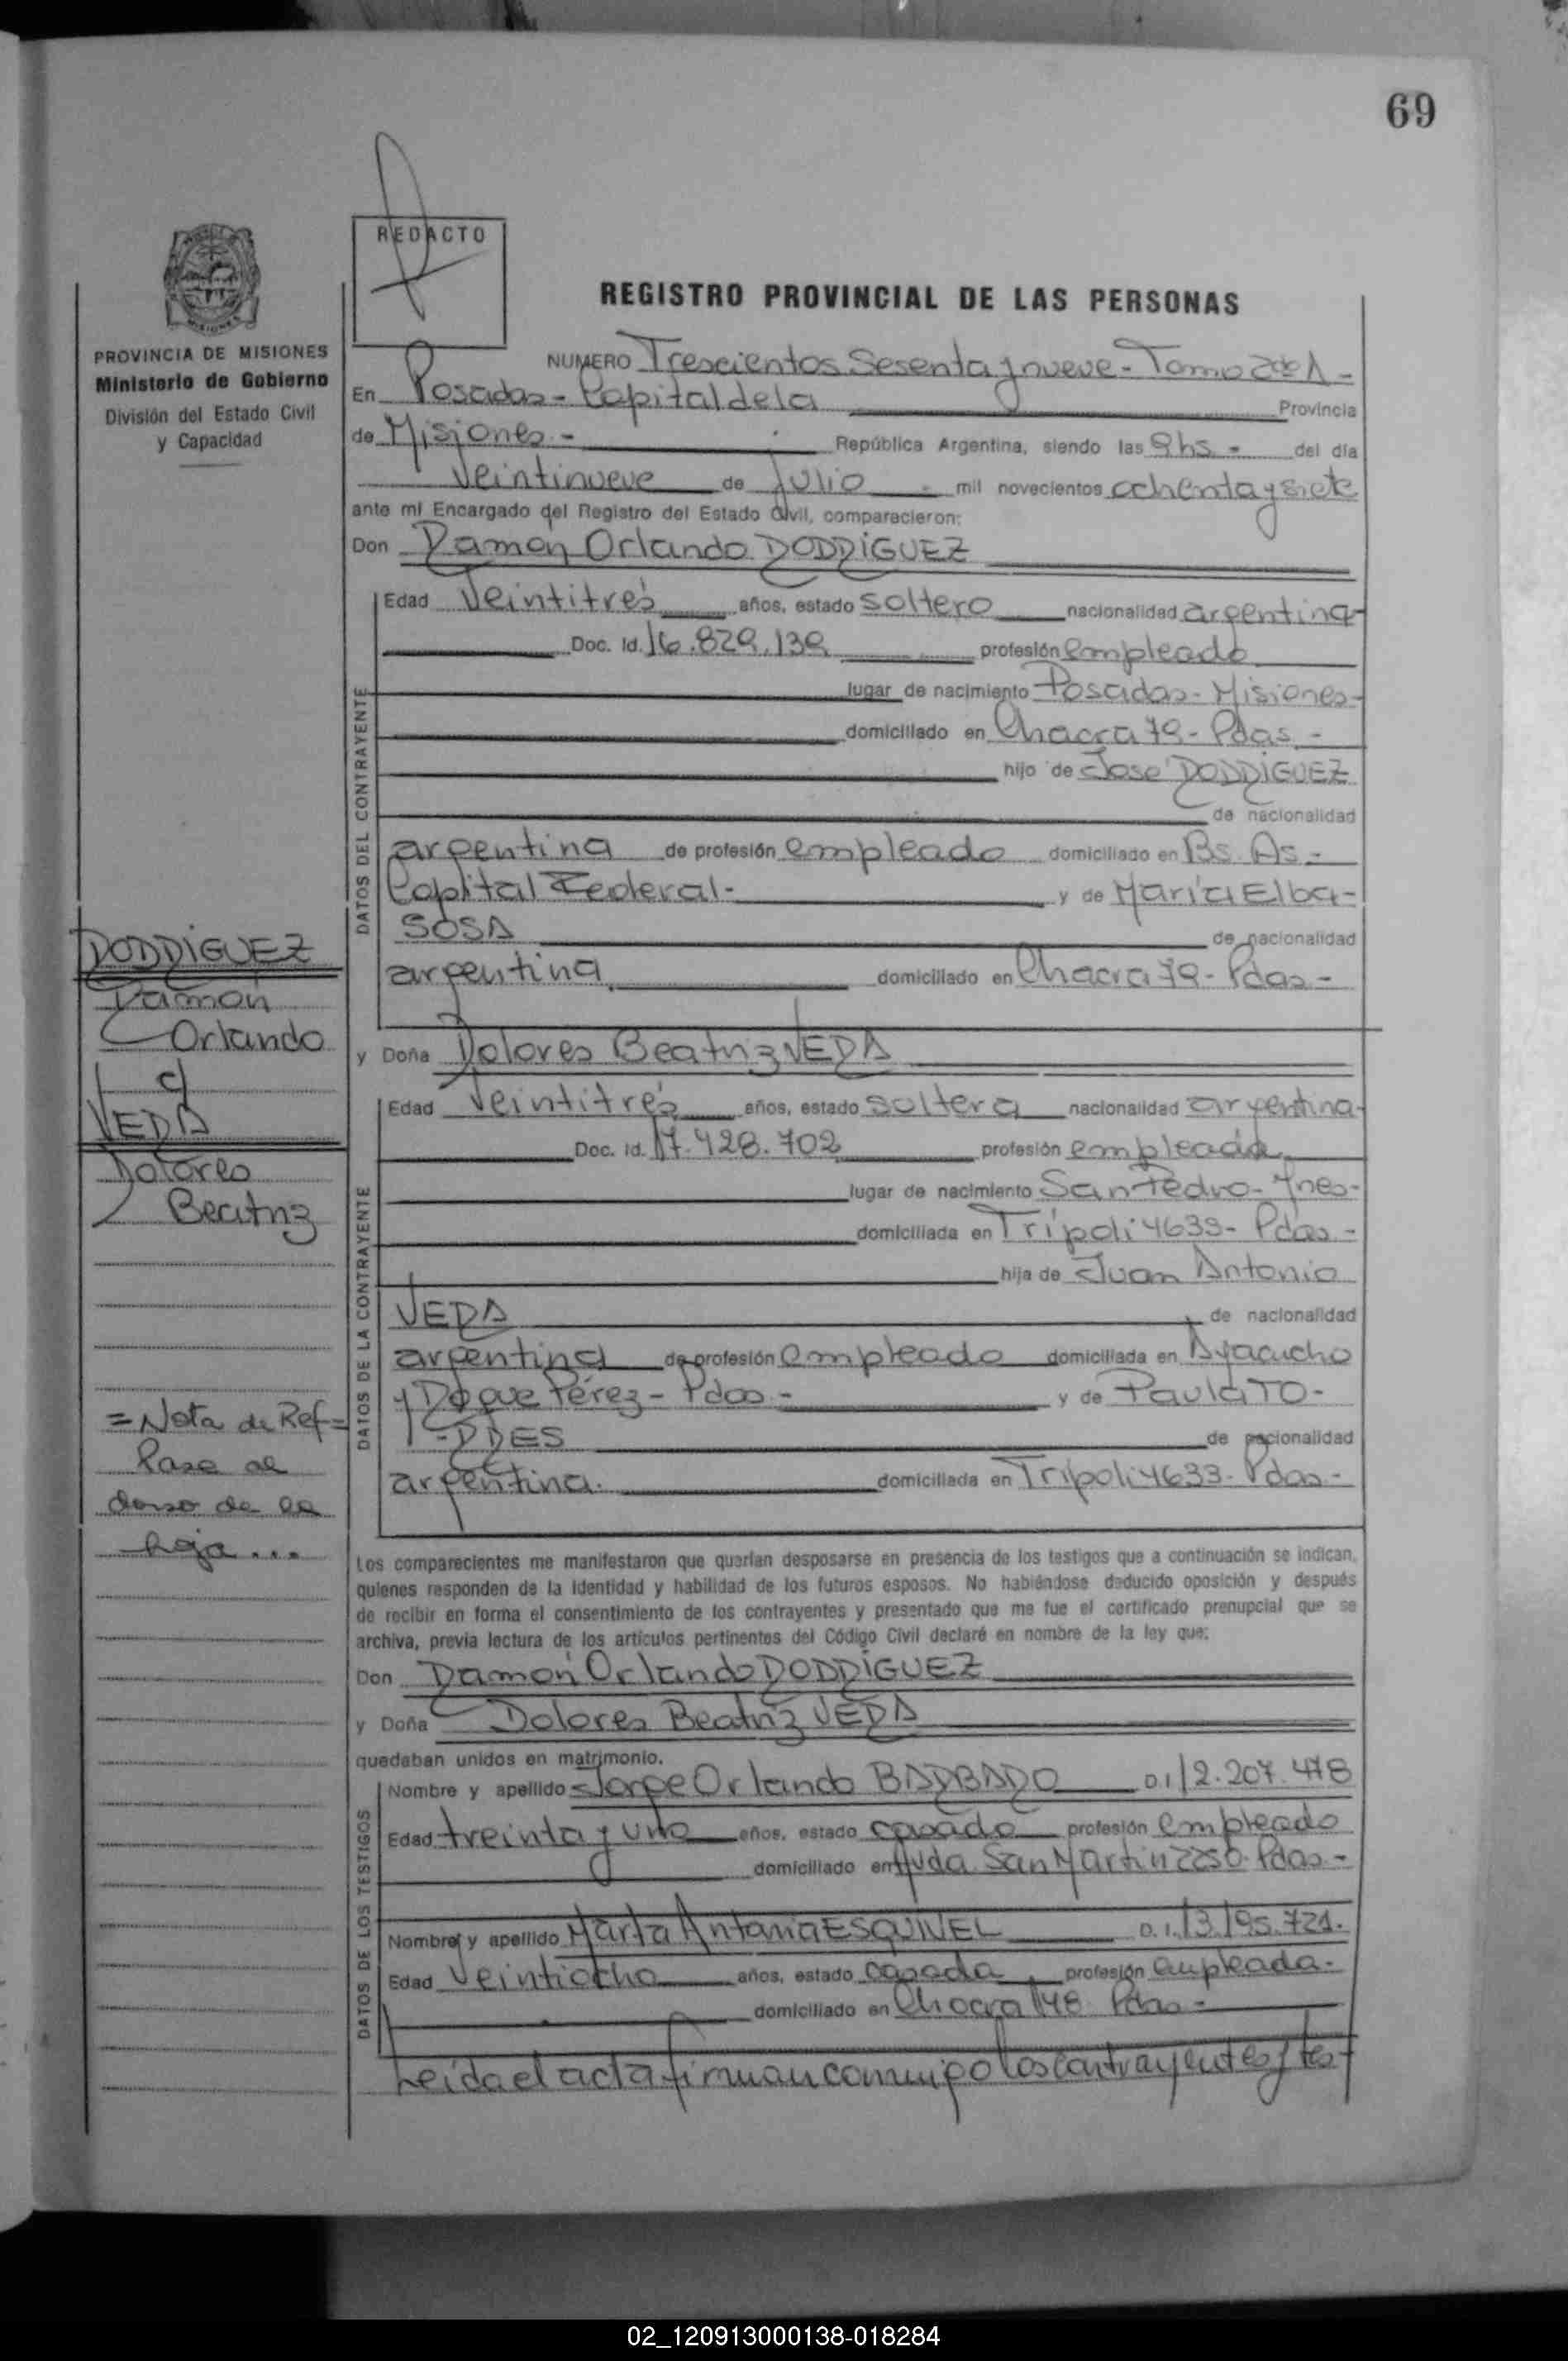 69
REDACTO
REGISTRO PROVINCIAL DE LAS PERSONAS
MISIONES
PROVINCIA DE MISIONES
Ministerio de Gobierno
División del Estado Civil
y Capacidad
NUMERO Trescientos Sesenta y nueve - Tomo 2do A -
En Posadas - Capital de la Provincia
de Misiones - República Argentina, siendo las 9 hs - del día
Veintinueve de Julio - mil novecientos ochenta y siete
ante mí Encargado del Registro del Estado Civil, comparecieron:
Don Ramón Orlando RODRIGUEZ
DATOS DEL CONTRAYENTE
Edad Veintitrés años, estado soltero nacionalidad argentina
Doc. Id. 16.829.139 profesión empleado
lugar de nacimiento Posadas - Misiones -
domiciliado en Chacra 79 - Pdas -
hijo de José RODRIGUEZ
de nacionalidad
argentina de profesión empleado domiciliado en Bs. As -
Capital Federal - y de María Elba -
SOSA de nacionalidad
argentina domiciliado en Chacra 79 - Pdas -
RODRIGUEZ
Ramón
Orlando
c/
VERA
Dolores
Beatriz
y Doña Dolores Beatriz VERA
DATOS DE LA CONTRAYENTE
Edad Veintitrés años, estado soltera nacionalidad argentina -
Doc. Id. 17.428.702 profesión empleada
lugar de nacimiento San Pedro - Mnes -
domiciliada en Trípoli 4633 - Pdas -
hija de Juan Antonio
VERA de nacionalidad
argentina de profesión empleado domiciliada en Ayacucho
y Roque Pérez - Pdas - y de Paula TO -
- RRES de nacionalidad
argentina. domiciliada en Trípoli 4633 - Pdas -
= Nota de Ref =
Pase al
dorso de la
hoja ...
Los comparecientes me manifestaron que querían desposarse en presencia de los testigos que a continuación se indican,
quienes responden de la identidad y habilidad de los futuros esposos. No habiéndose deducido oposición y después
de recibir en forma el consentimiento de los contrayentes y presentado que me fue el certificado prenupcial que se
archiva, previa lectura de los artículos pertinentes del Código Civil declaré en nombre de la ley que:
Don Ramón Orlando RODRIGUEZ
y Doña Dolores Beatriz VERA
quedaban unidos en matrimonio.
DATOS DE LOS TESTIGOS
Nombre y apellido Jorge Orlando BARBARO D.I. 12.207.478
Edad treinta y uno años, estado casado profesión empleado
domiciliado en Avda. San Martín 2250 Pdas -
Nombre y apellido Marta Antonia ESQUIVEL D.I. 13.195.721.
Edad Veintiocho años, estado casada profesión empleada -
domiciliado en Chacra 148 Pdas -
Leída el acta firman conmigo los contrayentes y tes-
02_120913000138-018284